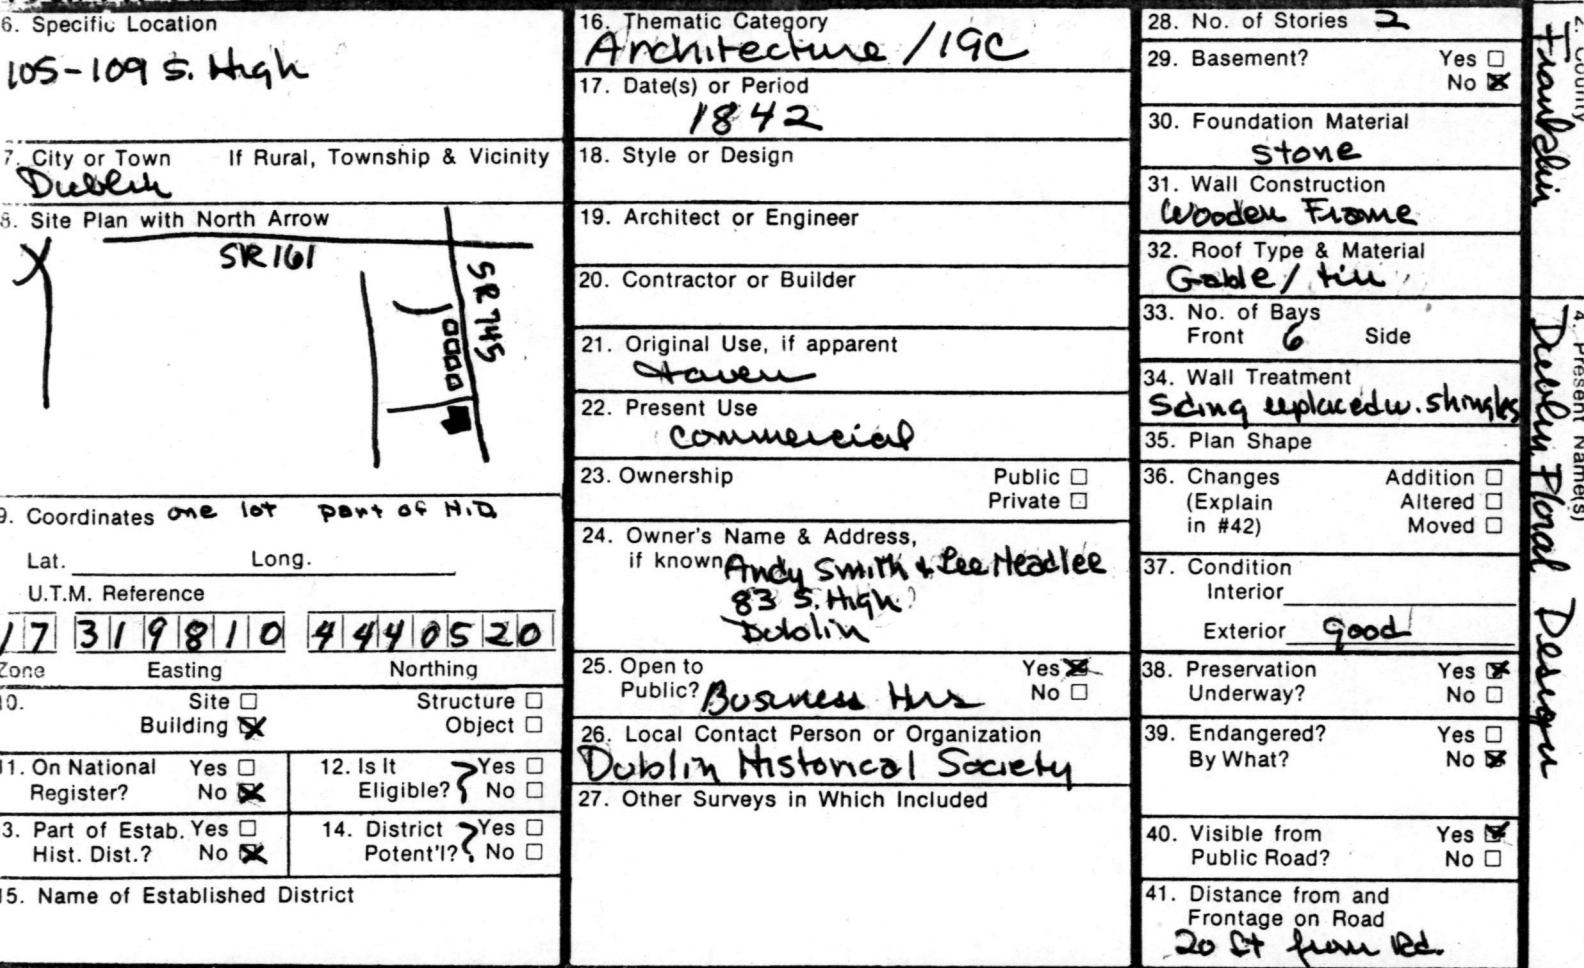 6. Specific Location
105-109 S. High
7. City or Town If Rural, Township & Vicinity
Dublin
8. Site Plan with North Arrow
SR 161
SR 745
9. Coordinates one lot part of H.D.
Lat. Long.
U.T.M. Reference
17 319810 4440520
Zone Easting Northing
10. Site □ Structure □
Building ☒ Object □
11. On National Yes □
Register? No ☒
12. Is it ? Yes □
Eligible? No □
13. Part of Estab. Yes □
Hist. Dist.? No ☒
14. District ? Yes □
Potent'l? No □
15. Name of Established District
16. Thematic Category
Architecture / 19C
17. Date(s) or Period
1842
18. Style or Design
19. Architect or Engineer
20. Contractor or Builder
21. Original Use, if apparent
tavern
22. Present Use
commercial
23. Ownership Public □
Private □
24. Owner's Name & Address,
if known Andy Smith & Lee Headlee
83 S. High
Dublin
25. Open to Yes ☒
Public? Business Hrs No □
26. Local Contact Person or Organization
Dublin Historical Society
27. Other Surveys in Which Included
28. No. of Stories 2
29. Basement? Yes □
No ☒
30. Foundation Material
stone
31. Wall Construction
Wooden Frame
32. Roof Type & Material
Gable / tin
33. No. of Bays
Front 6 Side
34. Wall Treatment
Siding replaced w. shingles
35. Plan Shape
36. Changes Addition □
(Explain Altered □
in #42) Moved □
37. Condition
Interior
Exterior good
38. Preservation Yes ☒
Underway? No □
39. Endangered? Yes □
By What? No ☒
40. Visible from Yes ☒
Public Road? No □
41. Distance from and
Frontage on Road
20 ft from Rd.
2. County
Franklin
4. Present Name(s)
Dublin Floral Design